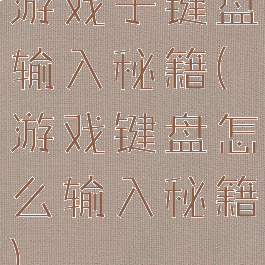 游戏手键盘
输入秘籍(
游戏键盘怎
么输入秘籍
)